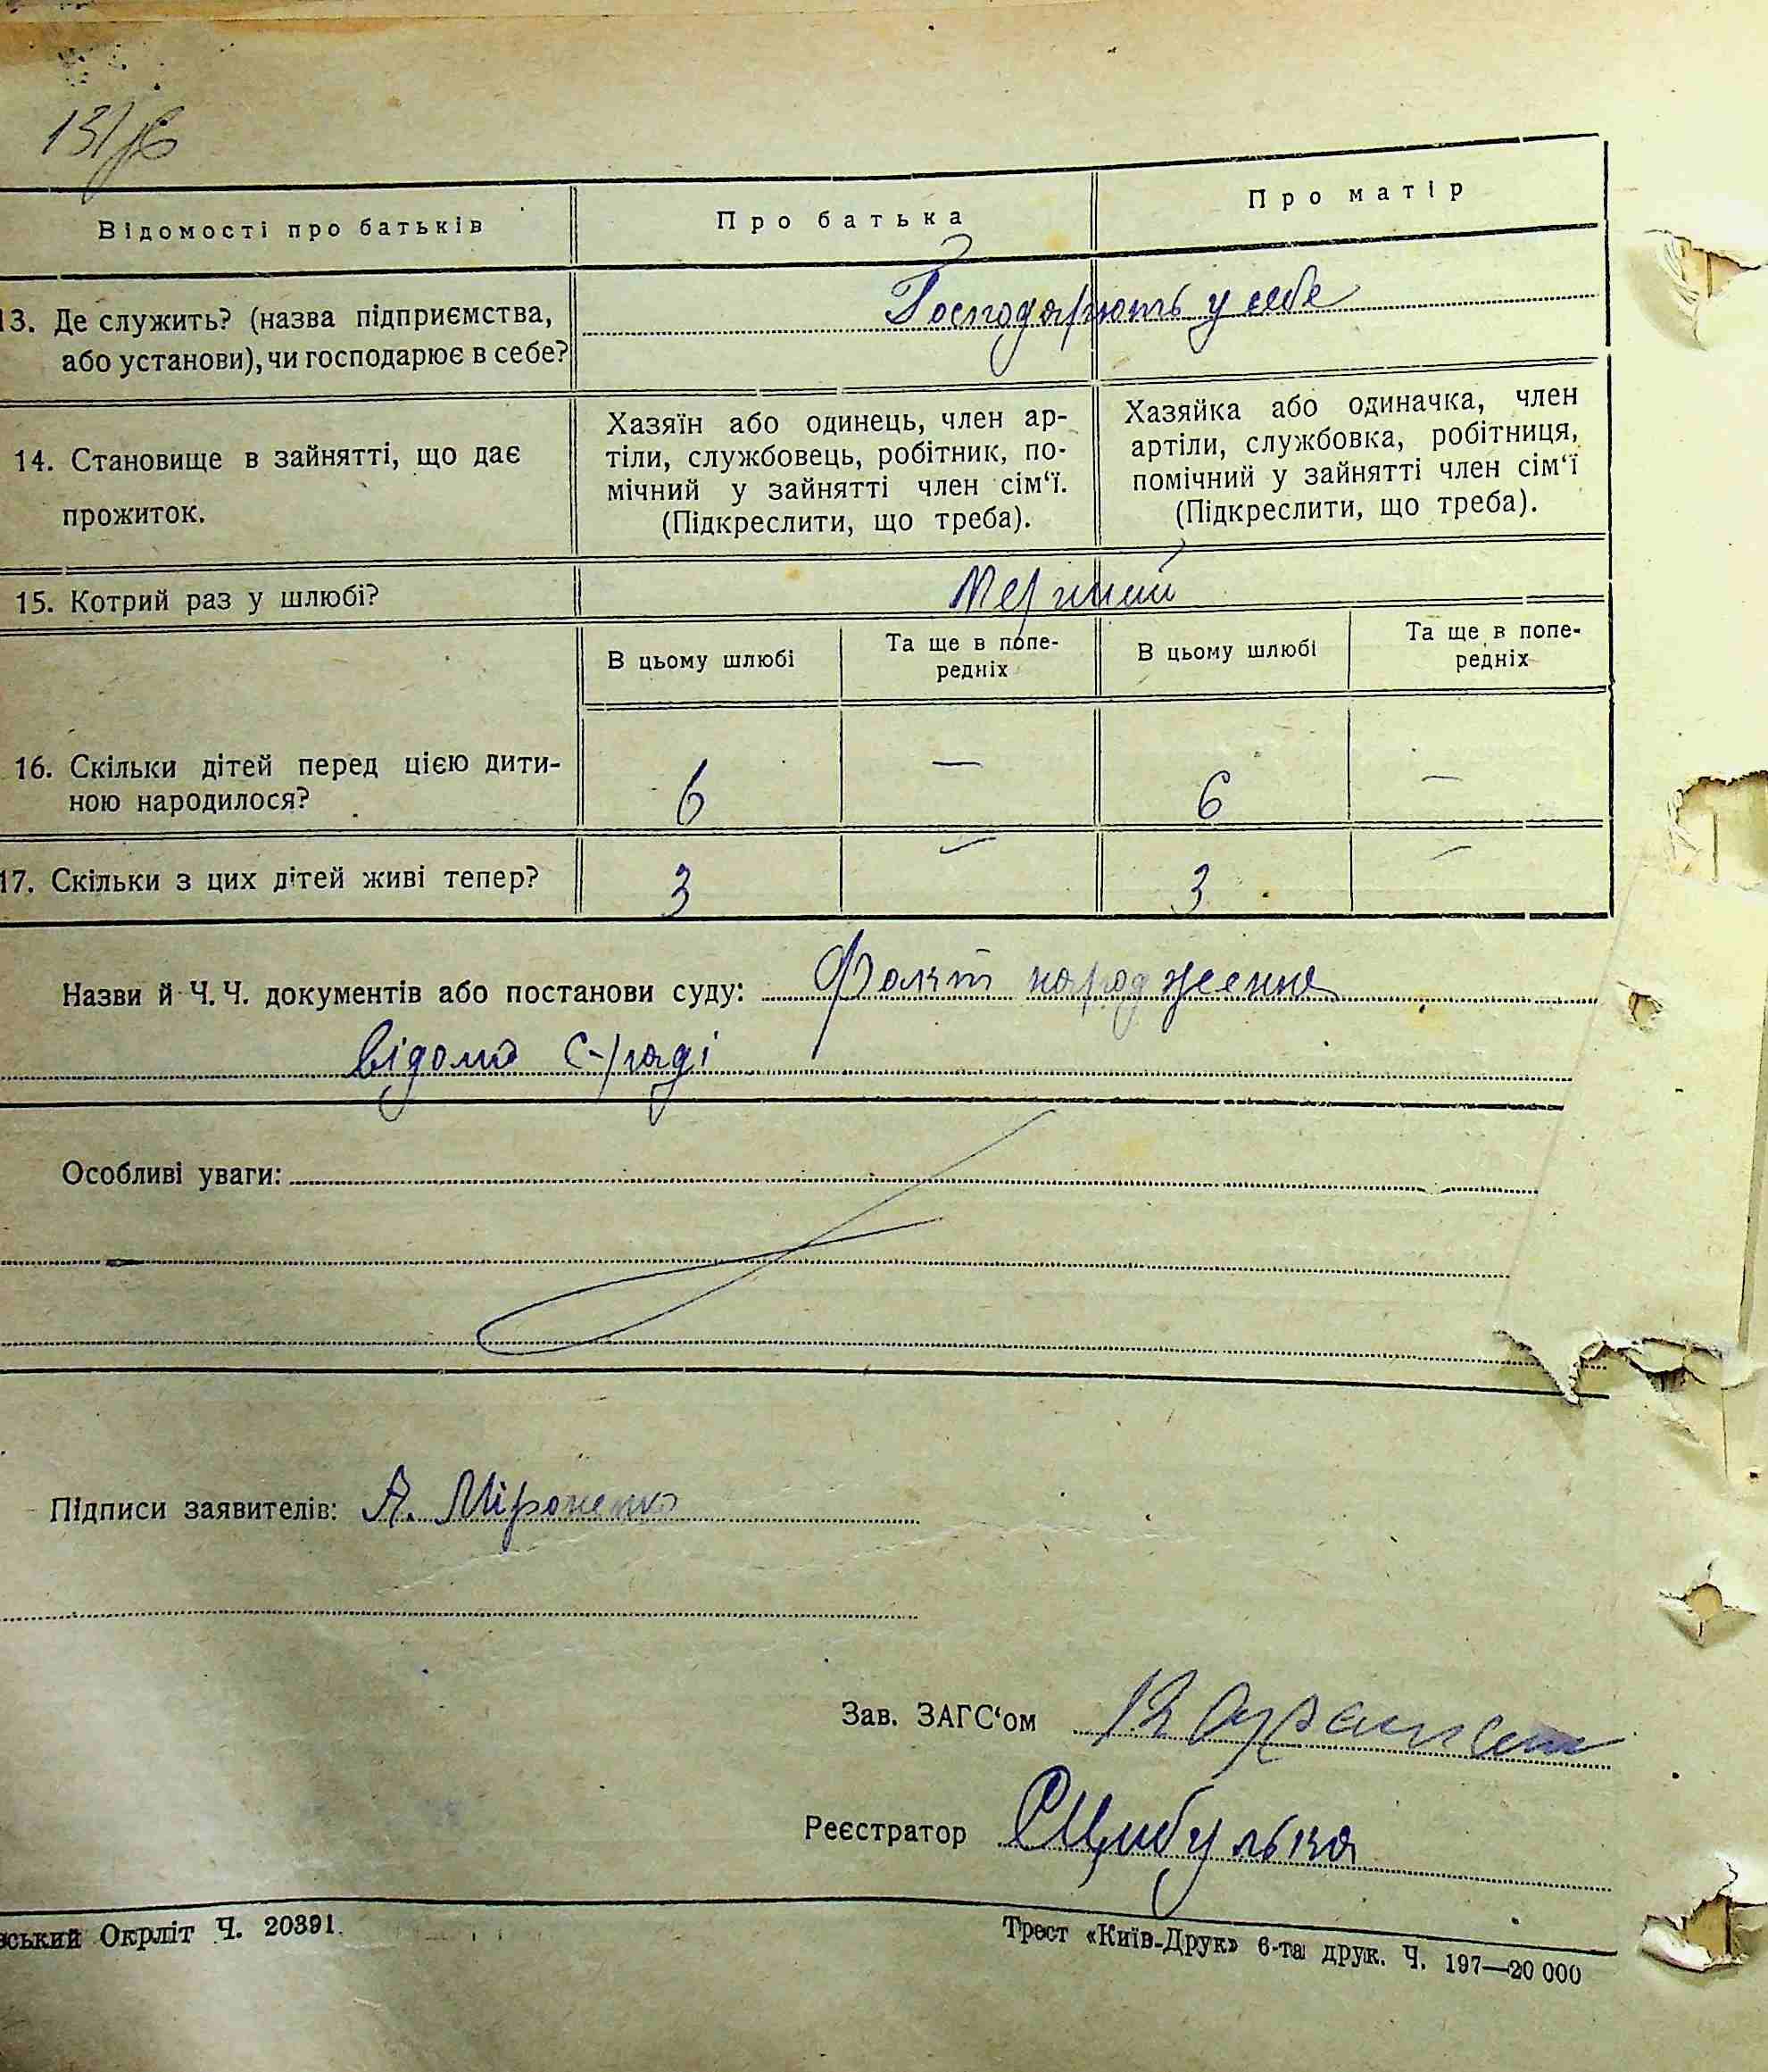 131
Відомості про батьків
Про батька
Про матір
13. Де служить? (назва підприємства,
або установи), чи господарює в себе?
Господарюють у себе
14. Становище в зайнятті, що дає
прожиток.
Хазяїн або одинець, член ар-
тіли, службовець, робітник, по-
мічний у зайнятті член сім‘ї.
(Підкреслити, що треба).
Хазяйка або одиначка, член
артіли, службовка, робітниця,
помічний у зайнятті член сім‘ї
(Підкреслити, що треба).
15. Котрий раз у шлюбі?
В цьому шлюбі
Та ще в попе-
редніх
В цьому шлюбі
Та ще в попе-
редніх
16. Скільки дітей перед цією дити-
ною народилося?
6 — 6 —
17. Скільки з цих дітей живі тепер?
3 — 3 —
Назви й Ч. Ч. документів або постанови суду: Факт народження
відомо с-раді
Особливі уваги:
Підписи заявителів: А. Міроненко
Зав. ЗАГС‘ом
Реєстратор Цибулька
вський Окрліт Ч. 20391.
Трест «Київ-Друк» 6-та друк. Ч. 197—20 000